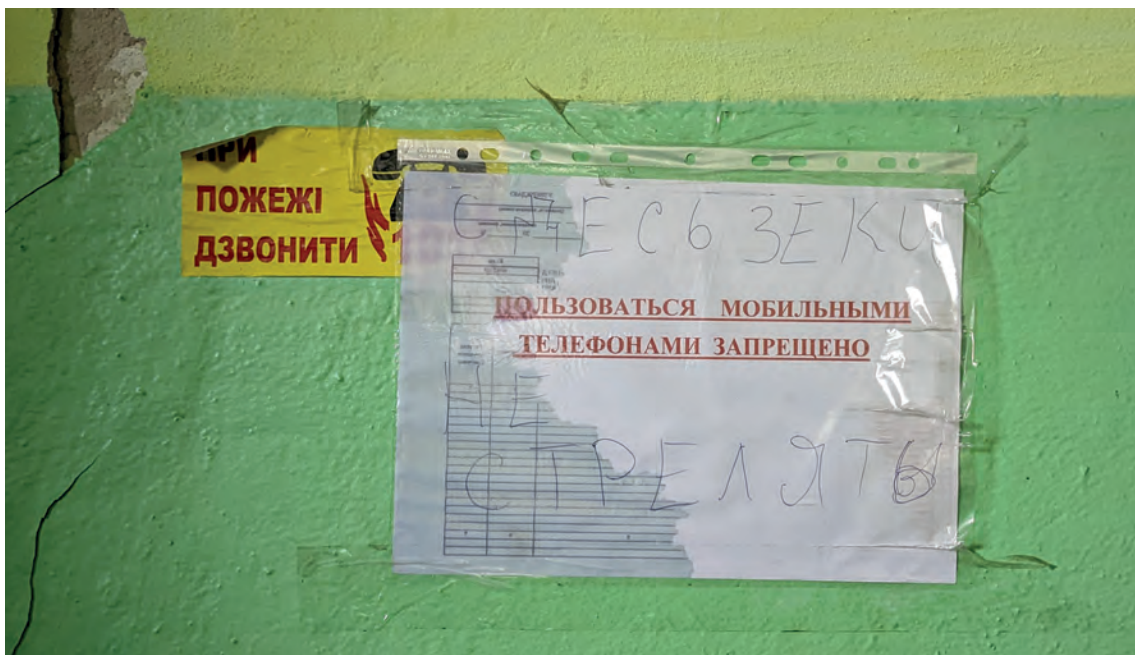 ПРИ
ПОЖЕЖІ
ДЗВОНИТИ
СДЕСЬ ЗЕКИ
ПОЛЬЗОВАТЬСЯ МОБИЛЬНЫМИ
ТЕЛЕФОНАМИ ЗАПРЕЩЕНО
НЕ
СТРЕЛЯТЬ